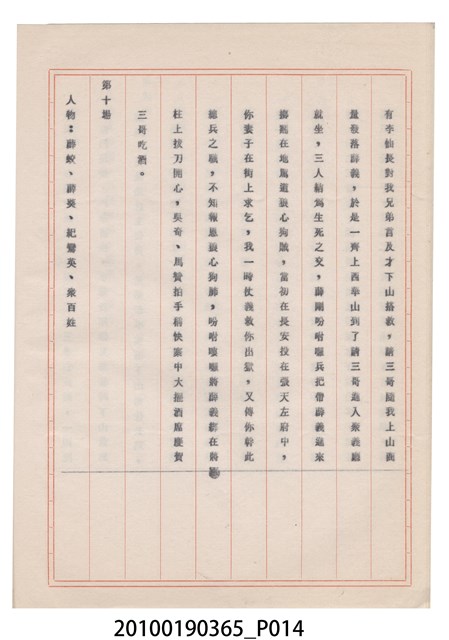 有李仙長對我兄弟言及才下山搭救，請三哥隨我上山商
量發落薛義，於是一齊上西華山到了請三哥進入聚義廳
就坐，三人結為生死之交，薛剛吩咐嘍兵把帶薛義進來
擲跪在地罵道狼心狗賊，當初在長安投在張天左府中，
你妻子在街上求乞，我一時仗義救你出獄，又傳你幹此
總兵之職，不知報恩狼心狗肺，吩咐嘍囉將薛義綁在將
柱上拔刀開心，吳奇、馬贊拍手稱快寨中大擺酒席慶賀
三哥吃酒。
第十場
人物：薛蛟、薛葵、紀鸞英、衆百姓
20100190365_P014